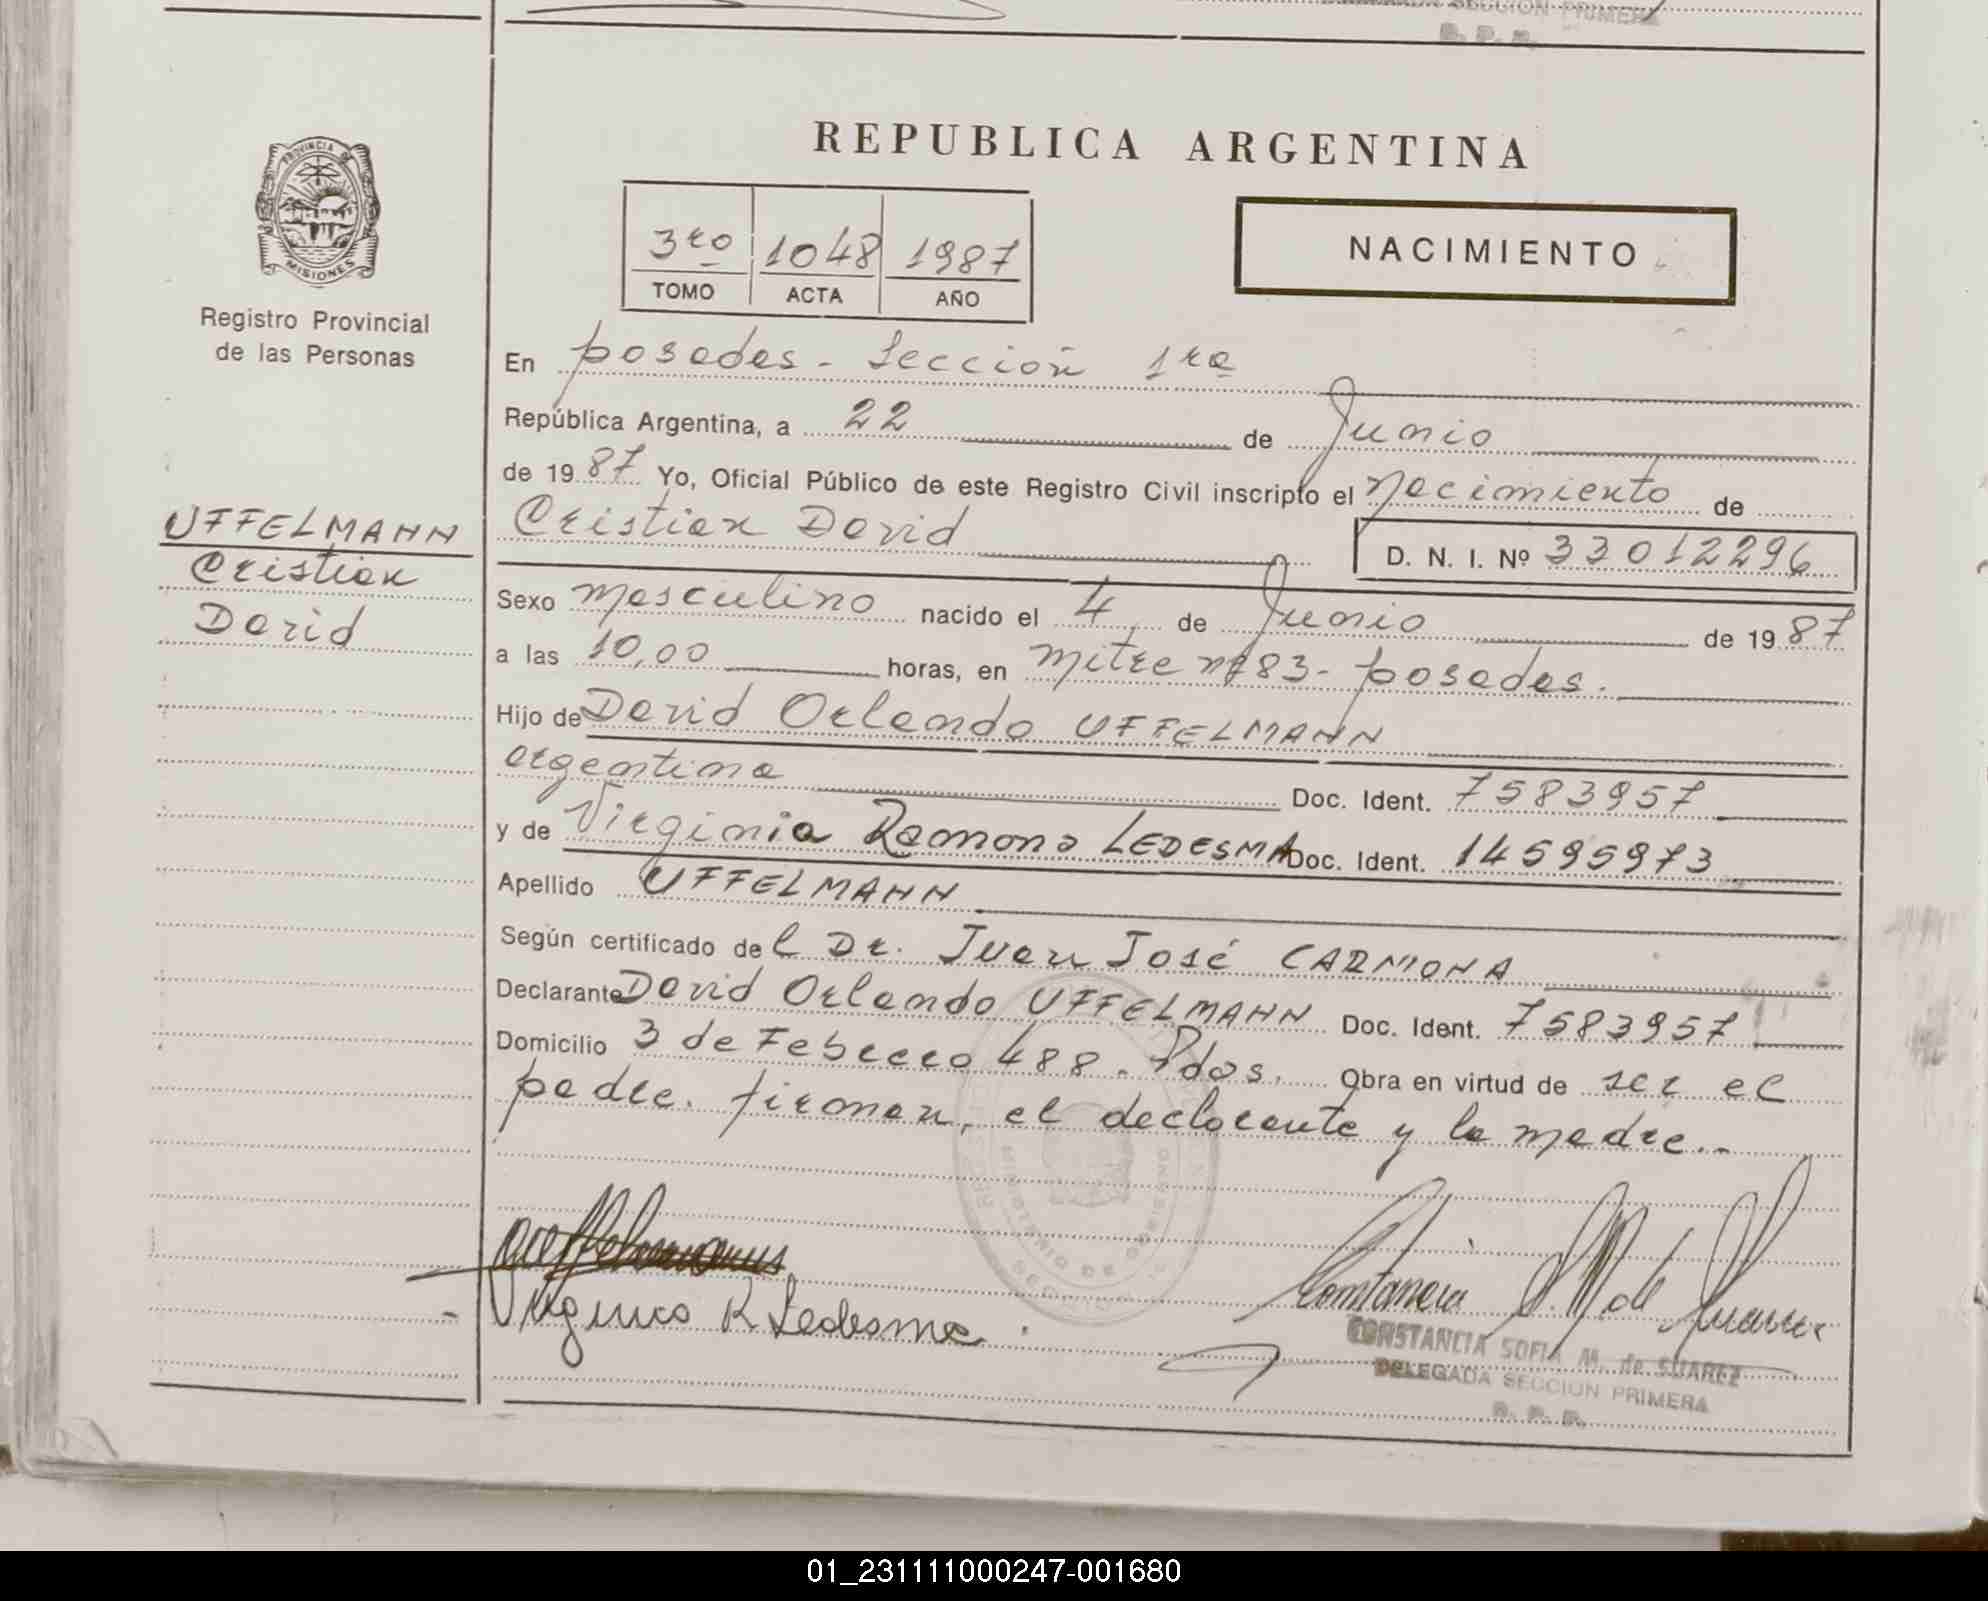 SECCION PRIMERA
R. P. P.
REPUBLICA ARGENTINA
PROVINCIA DE
MISIONES
Registro Provincial
de las Personas
3ro 1048 1987
TOMO ACTA AÑO
NACIMIENTO
En posadas - Sección 1ra
República Argentina, a 22 de Junio
de 1987 Yo, Oficial Público de este Registro Civil inscripto el nacimiento de
UFFELMANN
Cristian
David
Cristian David D. N. I. Nº 33012296
Sexo masculino nacido el 4 de Junio de 1987
a las 10,00 horas, en mitre nº 83 - posadas.
Hijo de David Orlando UFFELMANN
argentina Doc. Ident. 7583957
y de Virginia Ramona LEDESMA Doc. Ident. 14595973
Apellido UFFELMANN
Según certificado del Dr. Juan José CARMONA
Declarante David Orlando UFFELMANN Doc. Ident. 7583957
Domicilio 3 de Febrero 488. Pdas. Obra en virtud de ser el
padre. firman, el declarante y la madre.-
Virginia R Ledesma
CONSTANCIA SOFIA M. de SUAREZ
DELEGADA SECCION PRIMERA
R. P. P.
01_231111000247-001680